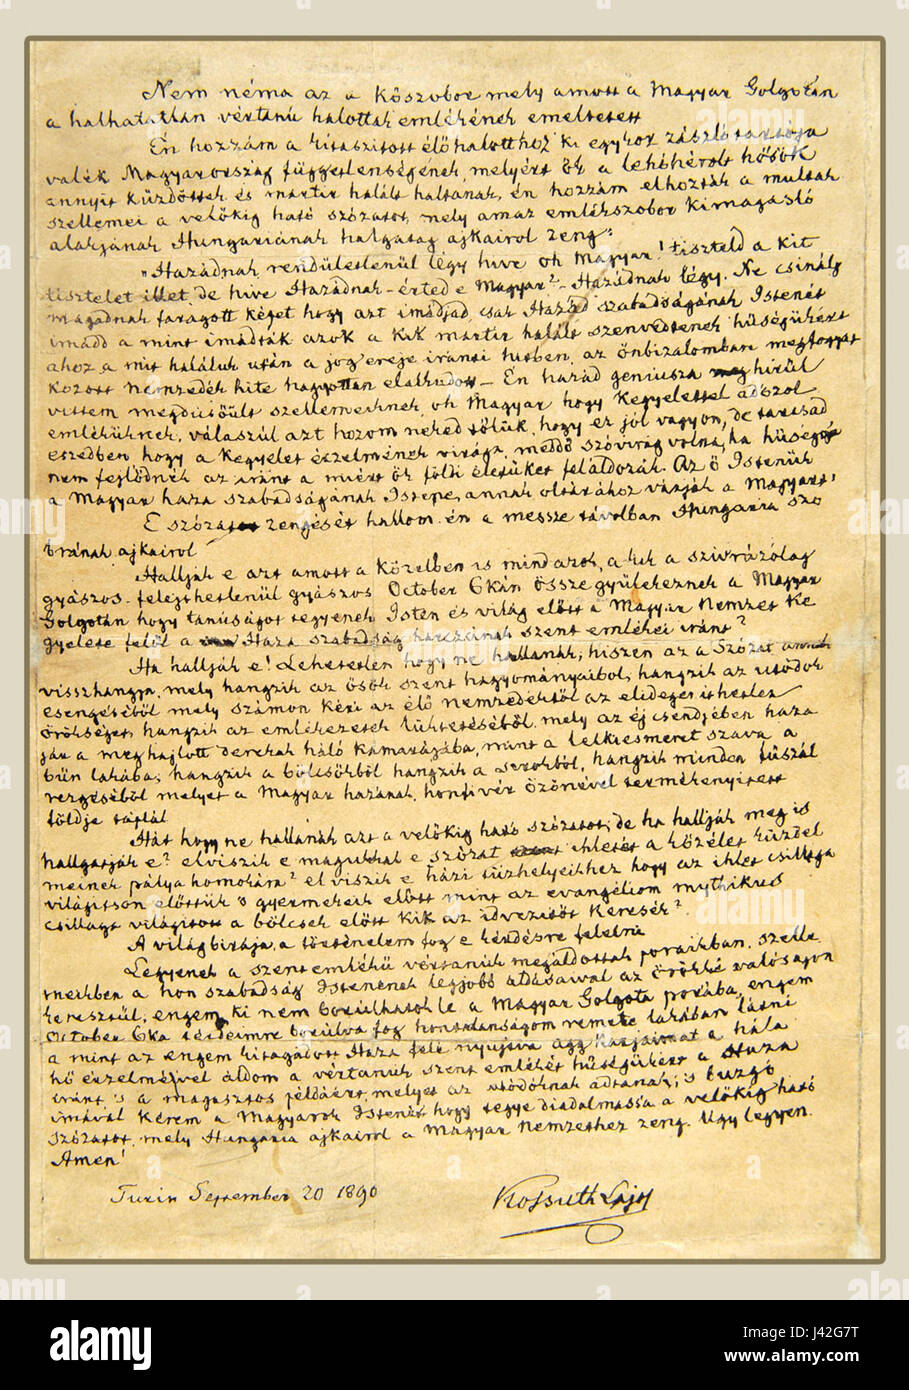 Nem néma az a kőszobor mely amott a Magyar Golgotán
a halhatatlan vértanú halottak emlékének emeltetett
Én hozzám a kitaszított élő halotthoz ki egykor zászlótartója
valék Magyarország függetlenségének, melyért ők a lehéhérolt hősök
annyit küzdöttek és martir halált haltanak, én hozzám elhozták a multak
szellemei a velőkig ható szózatot, mely amaz emlékszobor kimagasló
alakjának Hungariának halgatag ajkairol zeng:
"Hazádnak rendületlenül légy hive oh Magyar! tiszteld a kit
tisztelet illet, de hive Hazádnak – érted e Magyar? – Hazádnak légy. Ne csinálj
magadnak faragott képet hogy azt imádjad, csak Hazád szabadságának Istenét
imádd a mint imádták azok a kik martir halált szenvedtenek hűségükért
ahoz a mit haláluk után a jog ereje iránti hitben, az önbizalomban megfogyat
kozott nemzedék hite hagyottan elalkudott – Én hazád geniusza hírül
vittem megdicsőült szellemeiknek, oh Magyar hogy kegyelettel adószol
emlékünknek, válaszúl azt hozom neked tőlük, hogy ez jól vagyon, de tartsad
eszedben hogy a kegyelet érzelmének virága, meddő szóvirág volna, ha hűséggé
nem fejlődnék az iránt a miért ők földi életüket feláldozák. Az ő Istenük
a Magyar haza szabadságának Istene, annak oltárához várják a Magyart"
E szózatot zengését hallom én a messze távolban Hungaria szo
brának ajkairol
Hallják e azt amott a közelben is mindazok, a kik a szivrázólag
gyászos – felejthetlenül gyászos October 6kán össze gyülekeznek a Magyar
Golgotán hogy tanúságot tegyenek Isten és világ előtt a Magyar Nemzet ke
gyelete felől a Haza szabadság harczainak szent emlékei iránt?
Ha hallják e! Lehetetlen hogy ne hallanák; hiszen az a szózat annak
visszhangja, mely hangzik az ősök szent hagyományaiból, hangzik az utódok
esengéséből mely számon kéri az élő nemzedéktől az elidegeníthetlen
örökséget, hangzik az emlékezetek lüktetéséből, mely az éj csendjében haza
jár a meghajlott derekak háló kamarájába, mint a lelkiesmeret szava a
bűn lakába; hangzik a bölcsőkből hangzik a sírokból, hangzik minden fűszál
rezgéséből melyet a Magyar hazának, honfi vér özönével termékenyített
földje táplál
Hát hogy ne hallanák azt a velőkig ható szózatot; de ha hallják meg is
hallgatják e? elviszik e magukkal e szózat ihletét a közélet küzdel
meinek pálya homokára? el viszik e házi tűzhelyeikhez hogy az ihlet csillaga
világítson előttük 's gyermekeik előtt mint az evangéliom mythikus
csillaga világított a bölcsek előtt kik az idvezitőt keresék?
A világ birája, a történelem fog e kérdésre felelni
Legyenek a szent emlékű vértanúk megáldottak poraikban, szelle
meikben a hon szabadság Istenének legjobb áldásaival az örökké valóságon
keresztül, engem, ki nem borúlhatok le a Magyar Golgota porába, engem
October 6ka térdeimre borúlva fog hontalanságom remete lakában látni
a mint az engem kitagadott Haza felé nyujtva agg karjaimat a hála
hő érzelmeivel áldom a vértanúk szent emlékét hűségükért a Haza
iránt 's a magasztos példáért, melyet az utódoknak adtanak; 's buzgó
imával kérem a Magyarok Istenét hogy tegye diadalmassá a velőkig ható
szózatot, mely Hungaria ajkairol a Magyar Nemzethez zeng. Ugy legyen.
Amen!
Turin September 20 1890
Kossuth Lajos
alamy stock photo
J42G7T
www.alamy.com